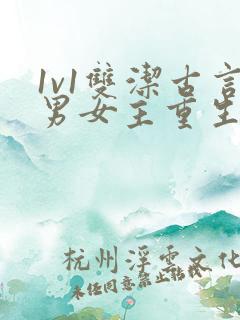 1v1雙潔古言
男女主重生
杭州浮雲文化
未经同意禁止转载